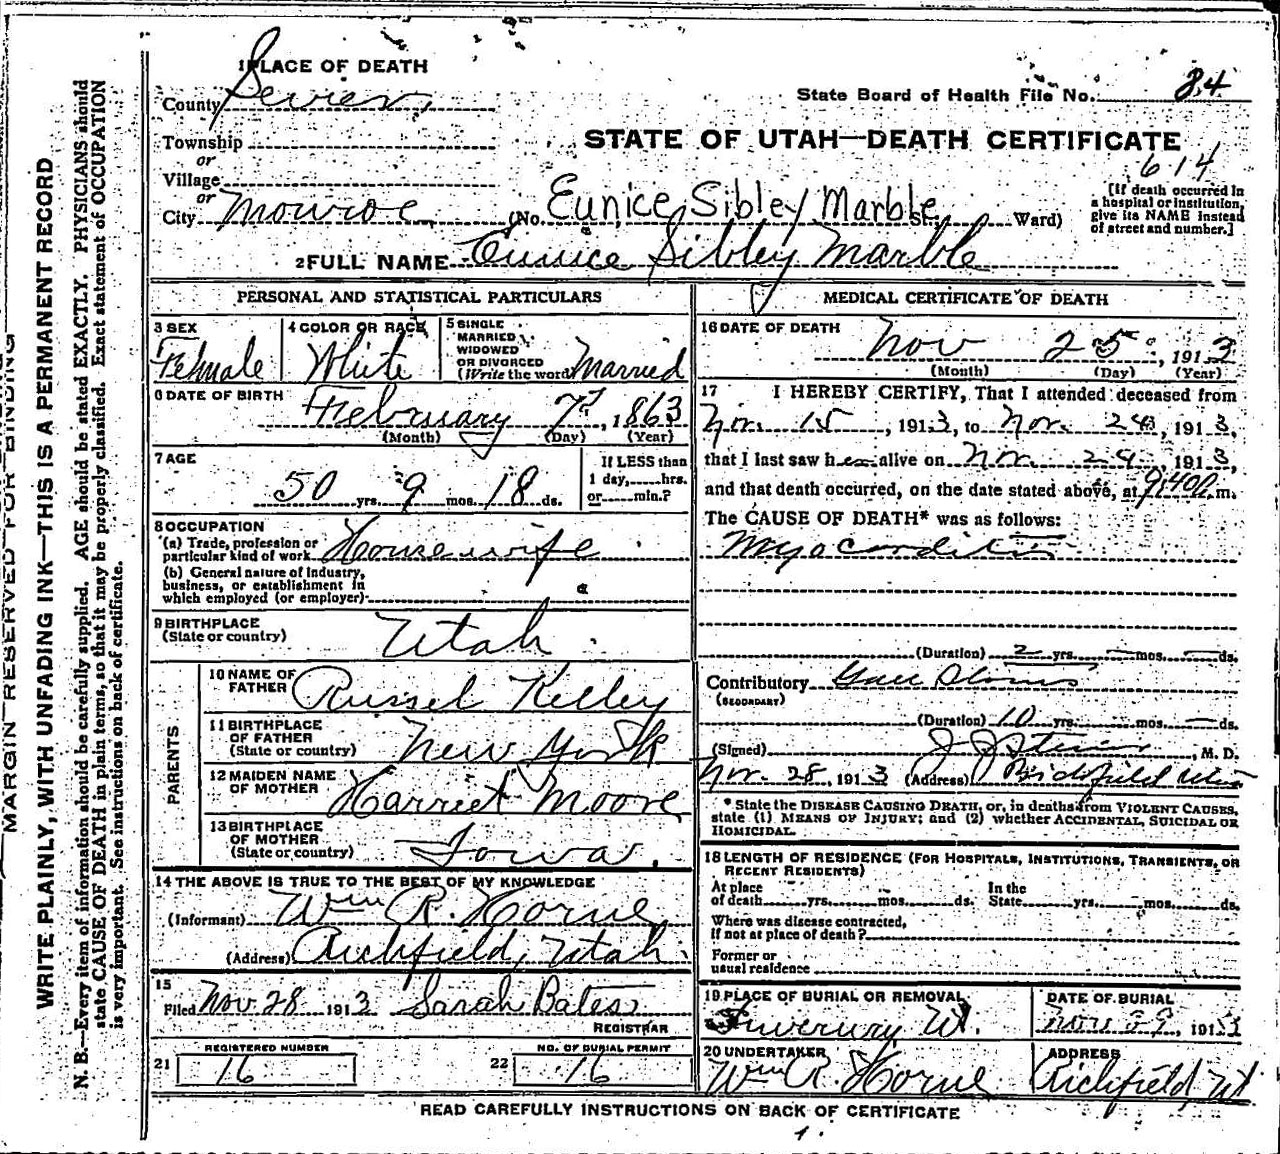 MARGIN RESERVED FOR BINDING
WRITE PLAINLY, WITH UNFADING INK—THIS IS A PERMANENT RECORD
N. B.—Every item of information should be carefully supplied. AGE should be stated EXACTLY. PHYSICIANS should
state CAUSE OF DEATH in plain terms, so that it may be properly classified. Exact statement of OCCUPATION
is very important. See instructions on back of certificate.
1 PLACE OF DEATH
County Sevier
Township
or
Village
or
City Monroe
State Board of Health File No. 84
STATE OF UTAH—DEATH CERTIFICATE
614
(No. Eunice Sibley Marble St., Ward)
[If death occurred in
a hospital or institution,
give its NAME instead
of street and number.]
2 FULL NAME Eunice Sibley Marble
PERSONAL AND STATISTICAL PARTICULARS
3 SEX
Female
4 COLOR OR RACE
White
5 SINGLE
MARRIED
WIDOWED
OR DIVORCED
(Write the word) Married
6 DATE OF BIRTH February 7, 1863
(Month) (Day) (Year)
7 AGE
50 yrs. 9 mos. 18 ds.
If LESS than
1 day,......hrs.
or......min.?
8 OCCUPATION
(a) Trade, profession or
particular kind of work Housewife
(b) General nature of Industry,
business, or establishment in
which employed (or employer)
9 BIRTHPLACE
(State or country) Utah
PARENTS
10 NAME OF
FATHER Russel Kelley
11 BIRTHPLACE
OF FATHER
(State or country) New York
12 MAIDEN NAME
OF MOTHER Harriet Moore
13 BIRTHPLACE
OF MOTHER
(State or country) Iowa.
14 THE ABOVE IS TRUE TO THE BEST OF MY KNOWLEDGE
(Informant) Wm R. Horne
(Address) Richfield, Utah
15
Filed Nov. 28 1913 Sarah Bates
REGISTRAR
21 REGISTERED NUMBER
16
22 NO. OF BURIAL PERMIT
16
MEDICAL CERTIFICATE OF DEATH
16 DATE OF DEATH
Nov 25, 1913
(Month) (Day) (Year)
17 I HEREBY CERTIFY, That I attended deceased from
Nov. 15, 1913, to Nov. 24, 1913,
that I last saw her alive on Nov. 24, 1913,
and that death occurred, on the date stated above, at 9:40 P.m.
The CAUSE OF DEATH* was as follows:
Myocarditis
(Duration) 2 yrs. — mos. — ds.
Contributory Gall Stones
(SECONDARY)
(Duration) 10 yrs. mos. — ds.
(Signed) J J Steiner, M. D.
Nov. 28, 1913 (Address) Richfield Utah
* State the DISEASE CAUSING DEATH, or, in deaths from VIOLENT CAUSES,
state (1) MEANS OF INJURY; and (2) whether ACCIDENTAL, SUICIDAL OR
HOMICIDAL.
18 LENGTH OF RESIDENCE (FOR HOSPITALS, INSTITUTIONS, TRANSIENTS, OR
RECENT RESIDENTS)
At place
of death......yrs.......mos.......ds.
In the
State......yrs.......mos.......ds.
Where was disease contracted,
If not at place of death?
Former or
usual residence
19 PLACE OF BURIAL OR REMOVAL
Inverury Ut.
DATE OF BURIAL
Nov 29, 1913
20 UNDERTAKER
Wm R. Horne
ADDRESS
Richfield, Ut
READ CAREFULLY INSTRUCTIONS ON BACK OF CERTIFICATE